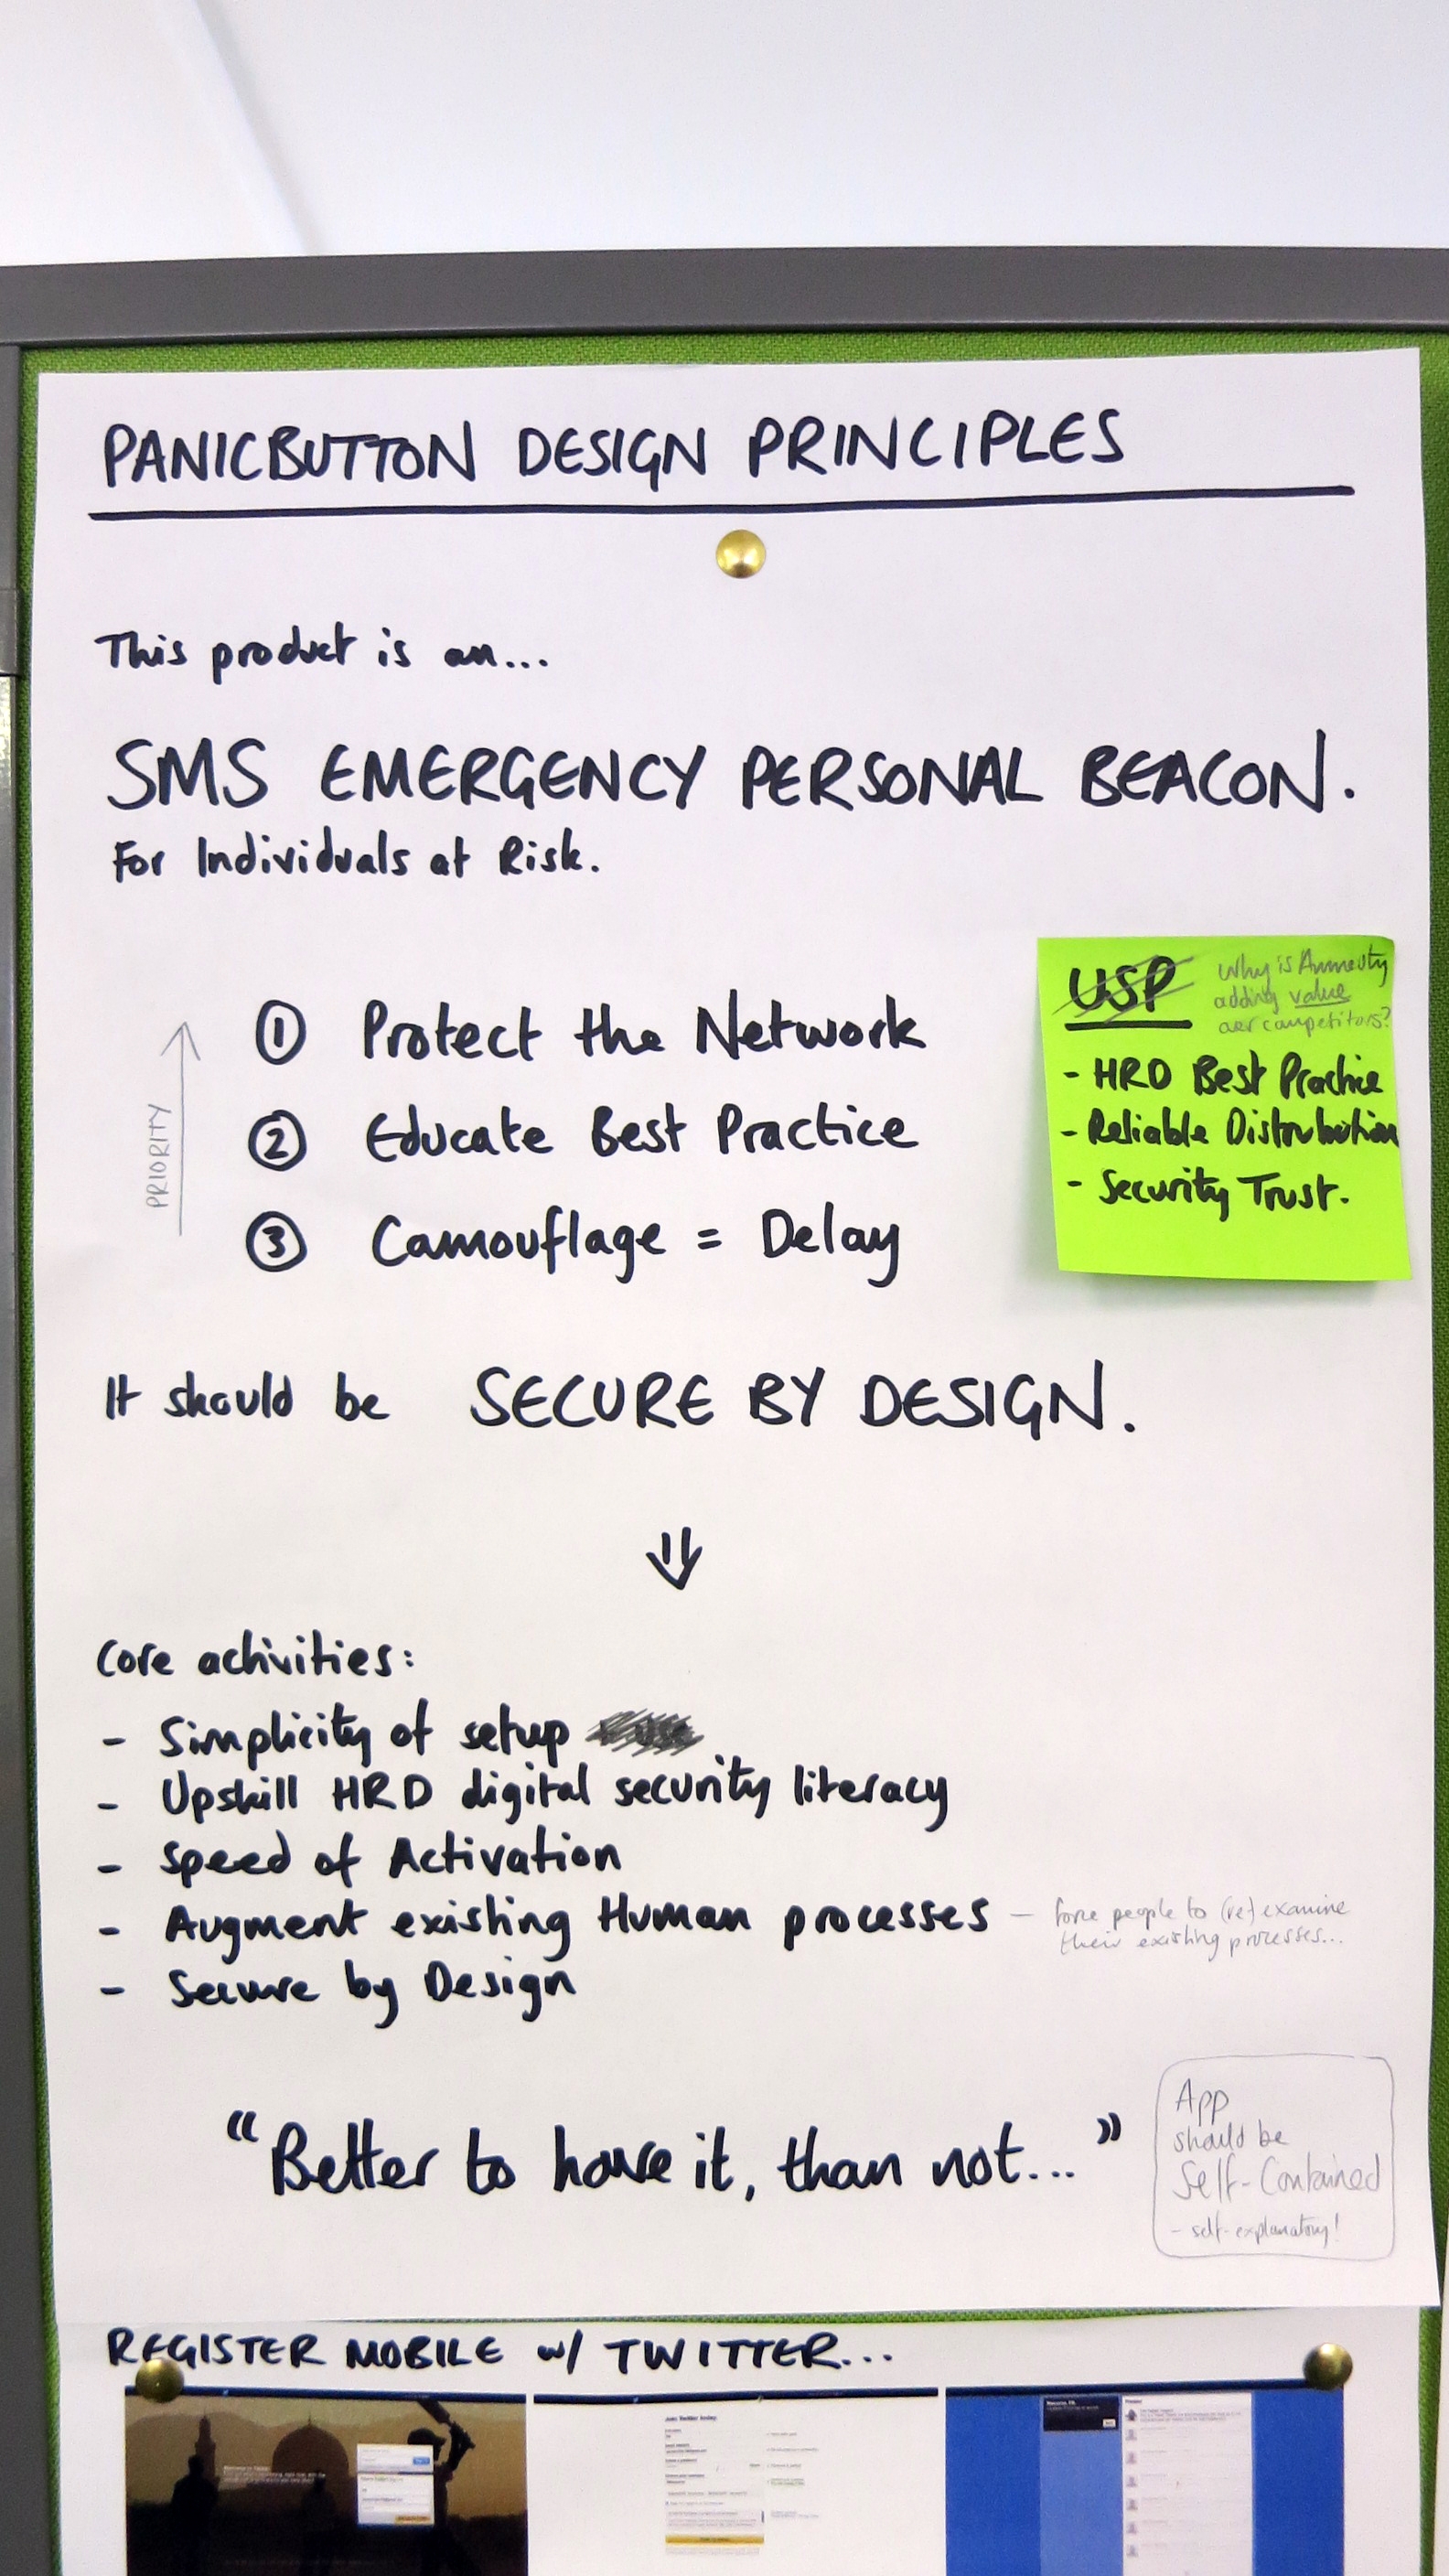 PANICBUTTON DESIGN PRINCIPLES
This product is an...
SMS EMERGENCY PERSONAL BEACON.
For Individuals at Risk.
PRIORITY
① Protect the Network
② Educate Best Practice
③ Camouflage = Delay
USP
Why is Amnesty
adding value
over competitors?
- HRD Best Practice
- Reliable Distribution
- Security Trust.
It should be SECURE BY DESIGN.
Core activities:
- Simplicity of setup
- Upskill HRD digital security literacy
- Speed of Activation
- Augment existing Human processes - force people to (re)examine
their existing processes...
- Secure by Design
"Better to have it, than not..."
App
should be
Self-Contained
- self-explanatory!
REGISTER MOBILE w/ TWITTER...